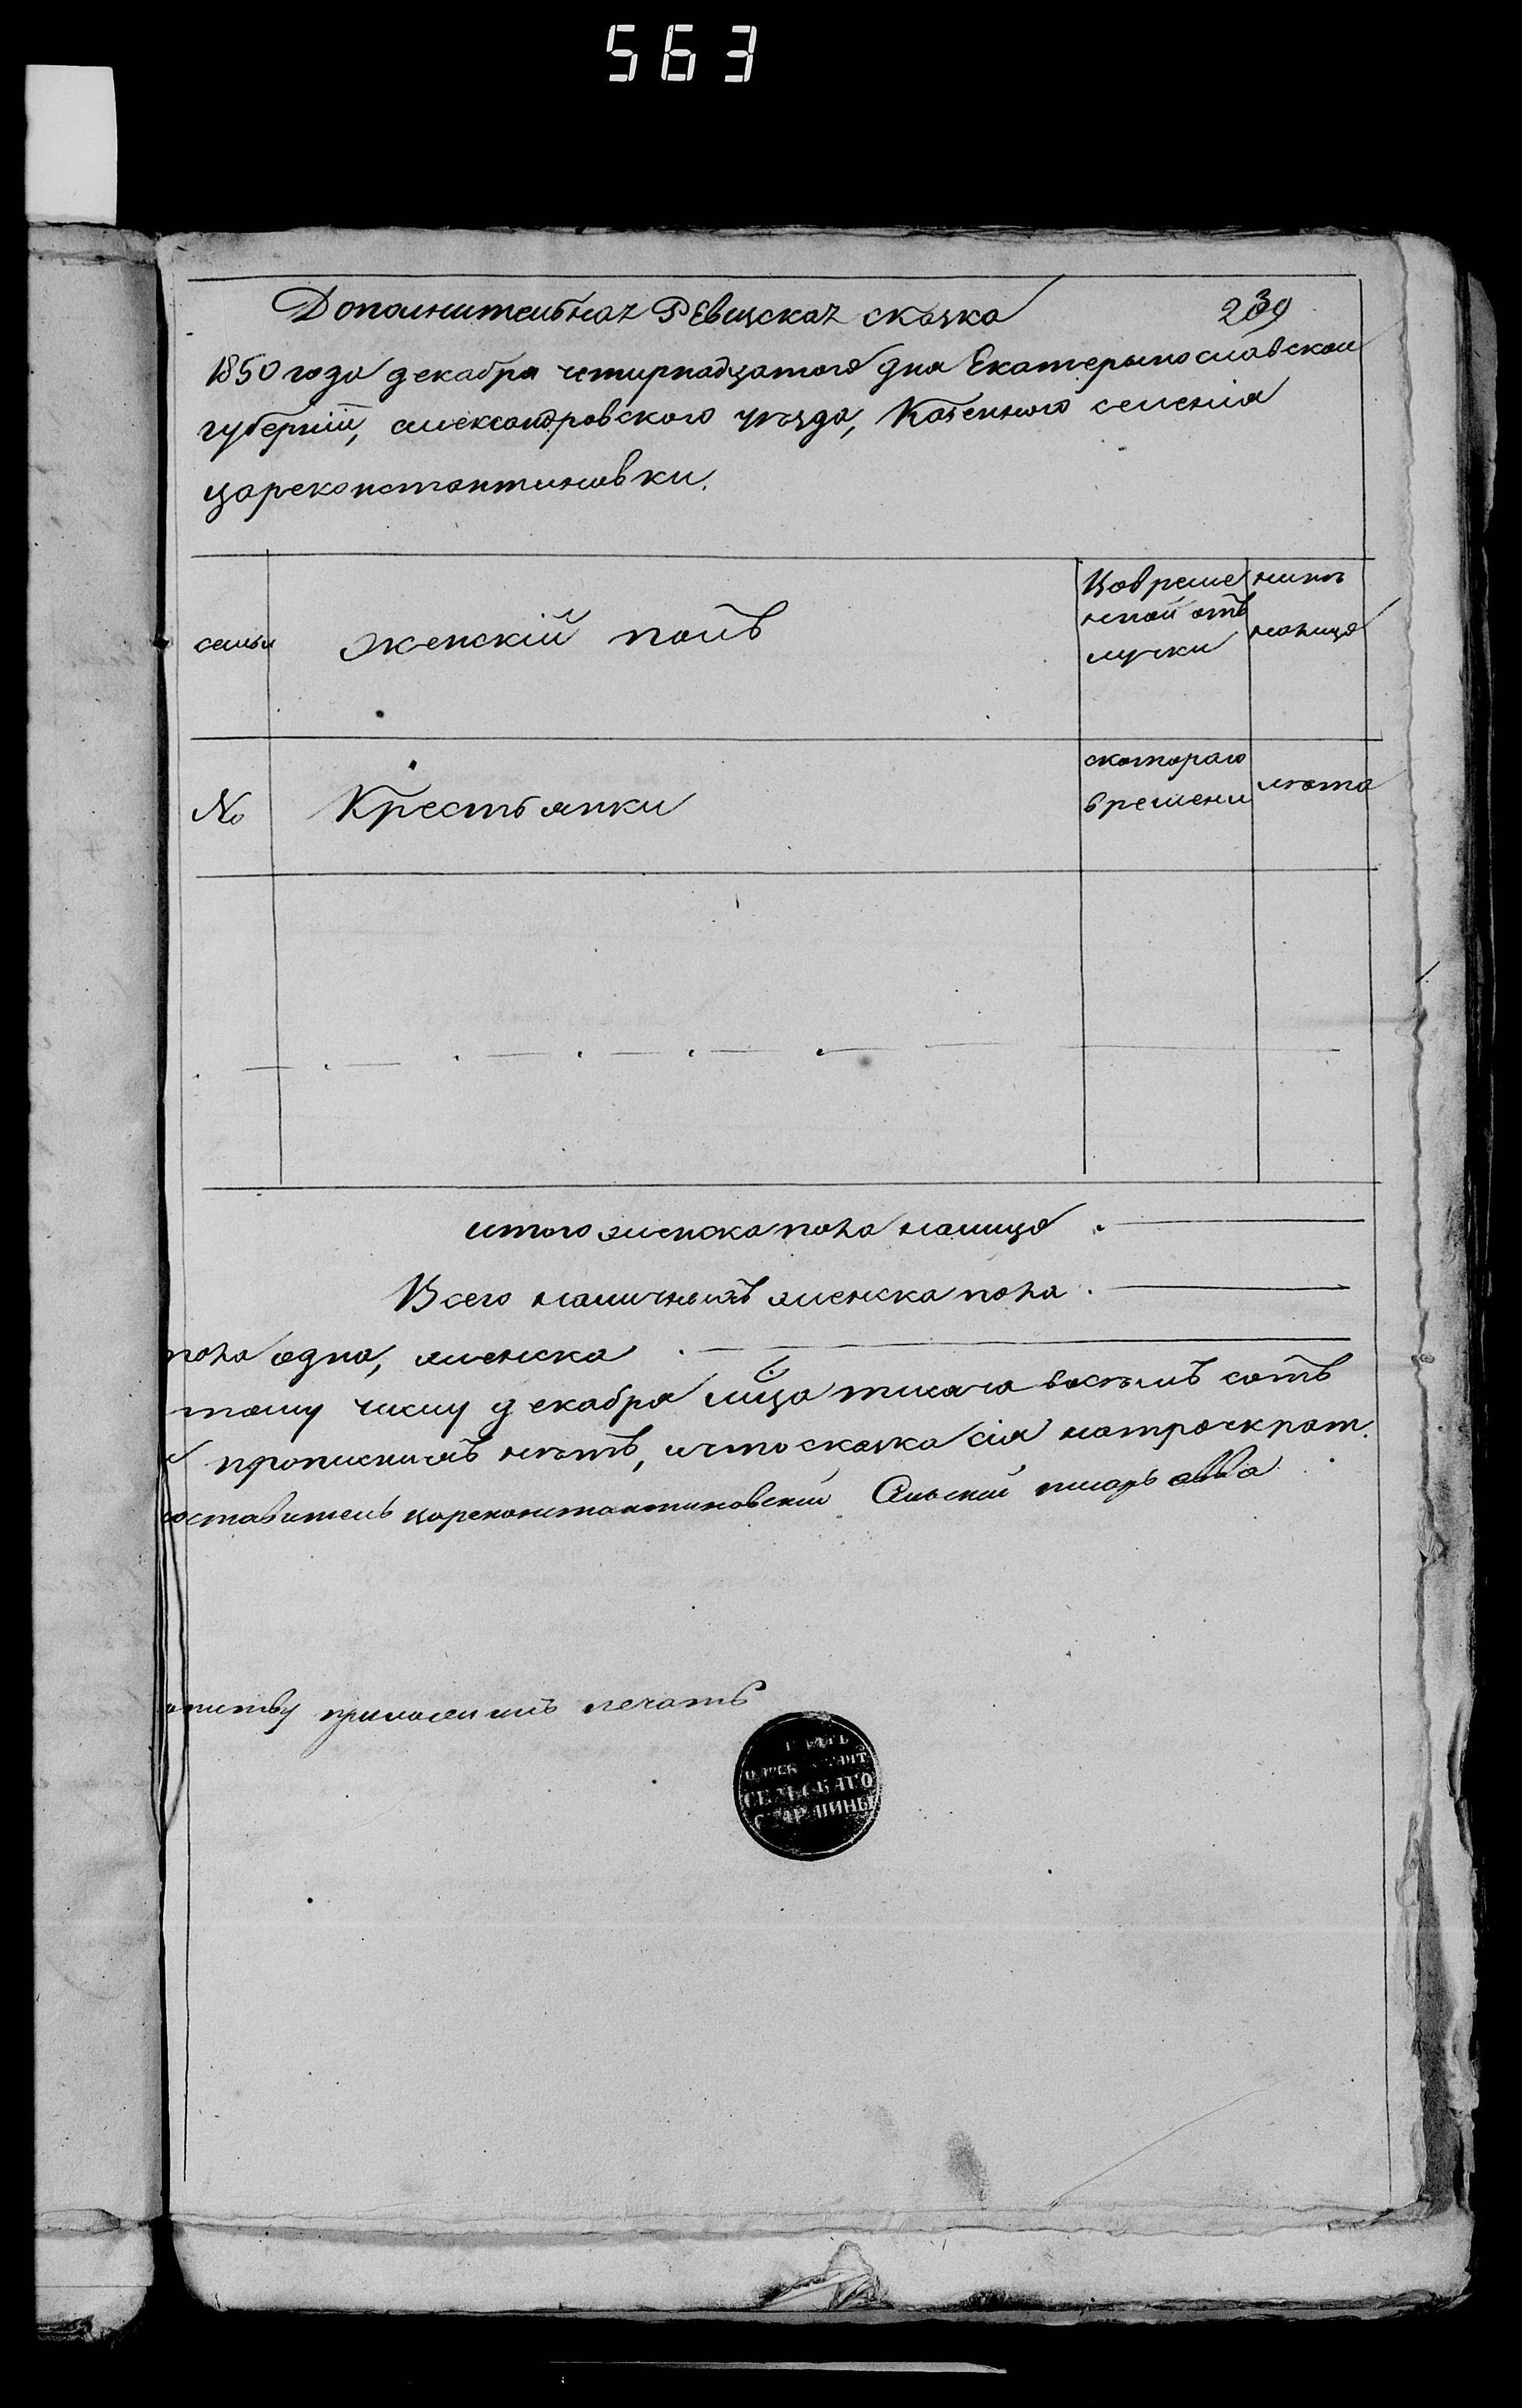 563
Дополнительная Ревизская сказка 239
1850 года декабра четирнадцатого дна Екатеринославскои
губернiи, александровского уезда, Казенного селенiя
цареконстантиновки.
семьи
женскiй полъ
Вовреме
нной отъ
лучки
нинъ
налицо
№
Крестьянки
скотораго
времени
лета
итого женска пола налицо
Всего наличныхъ женска пола
пола одна, женска
тому числу декабра мца тисяча восемъ сотъ
прописнихъ нетъ, ичто сказка сiя
цареконстантиновскiй Сельскiй писарь
приложилъ печать
СЕЛЬСКАГО
СТАРШИНЫ